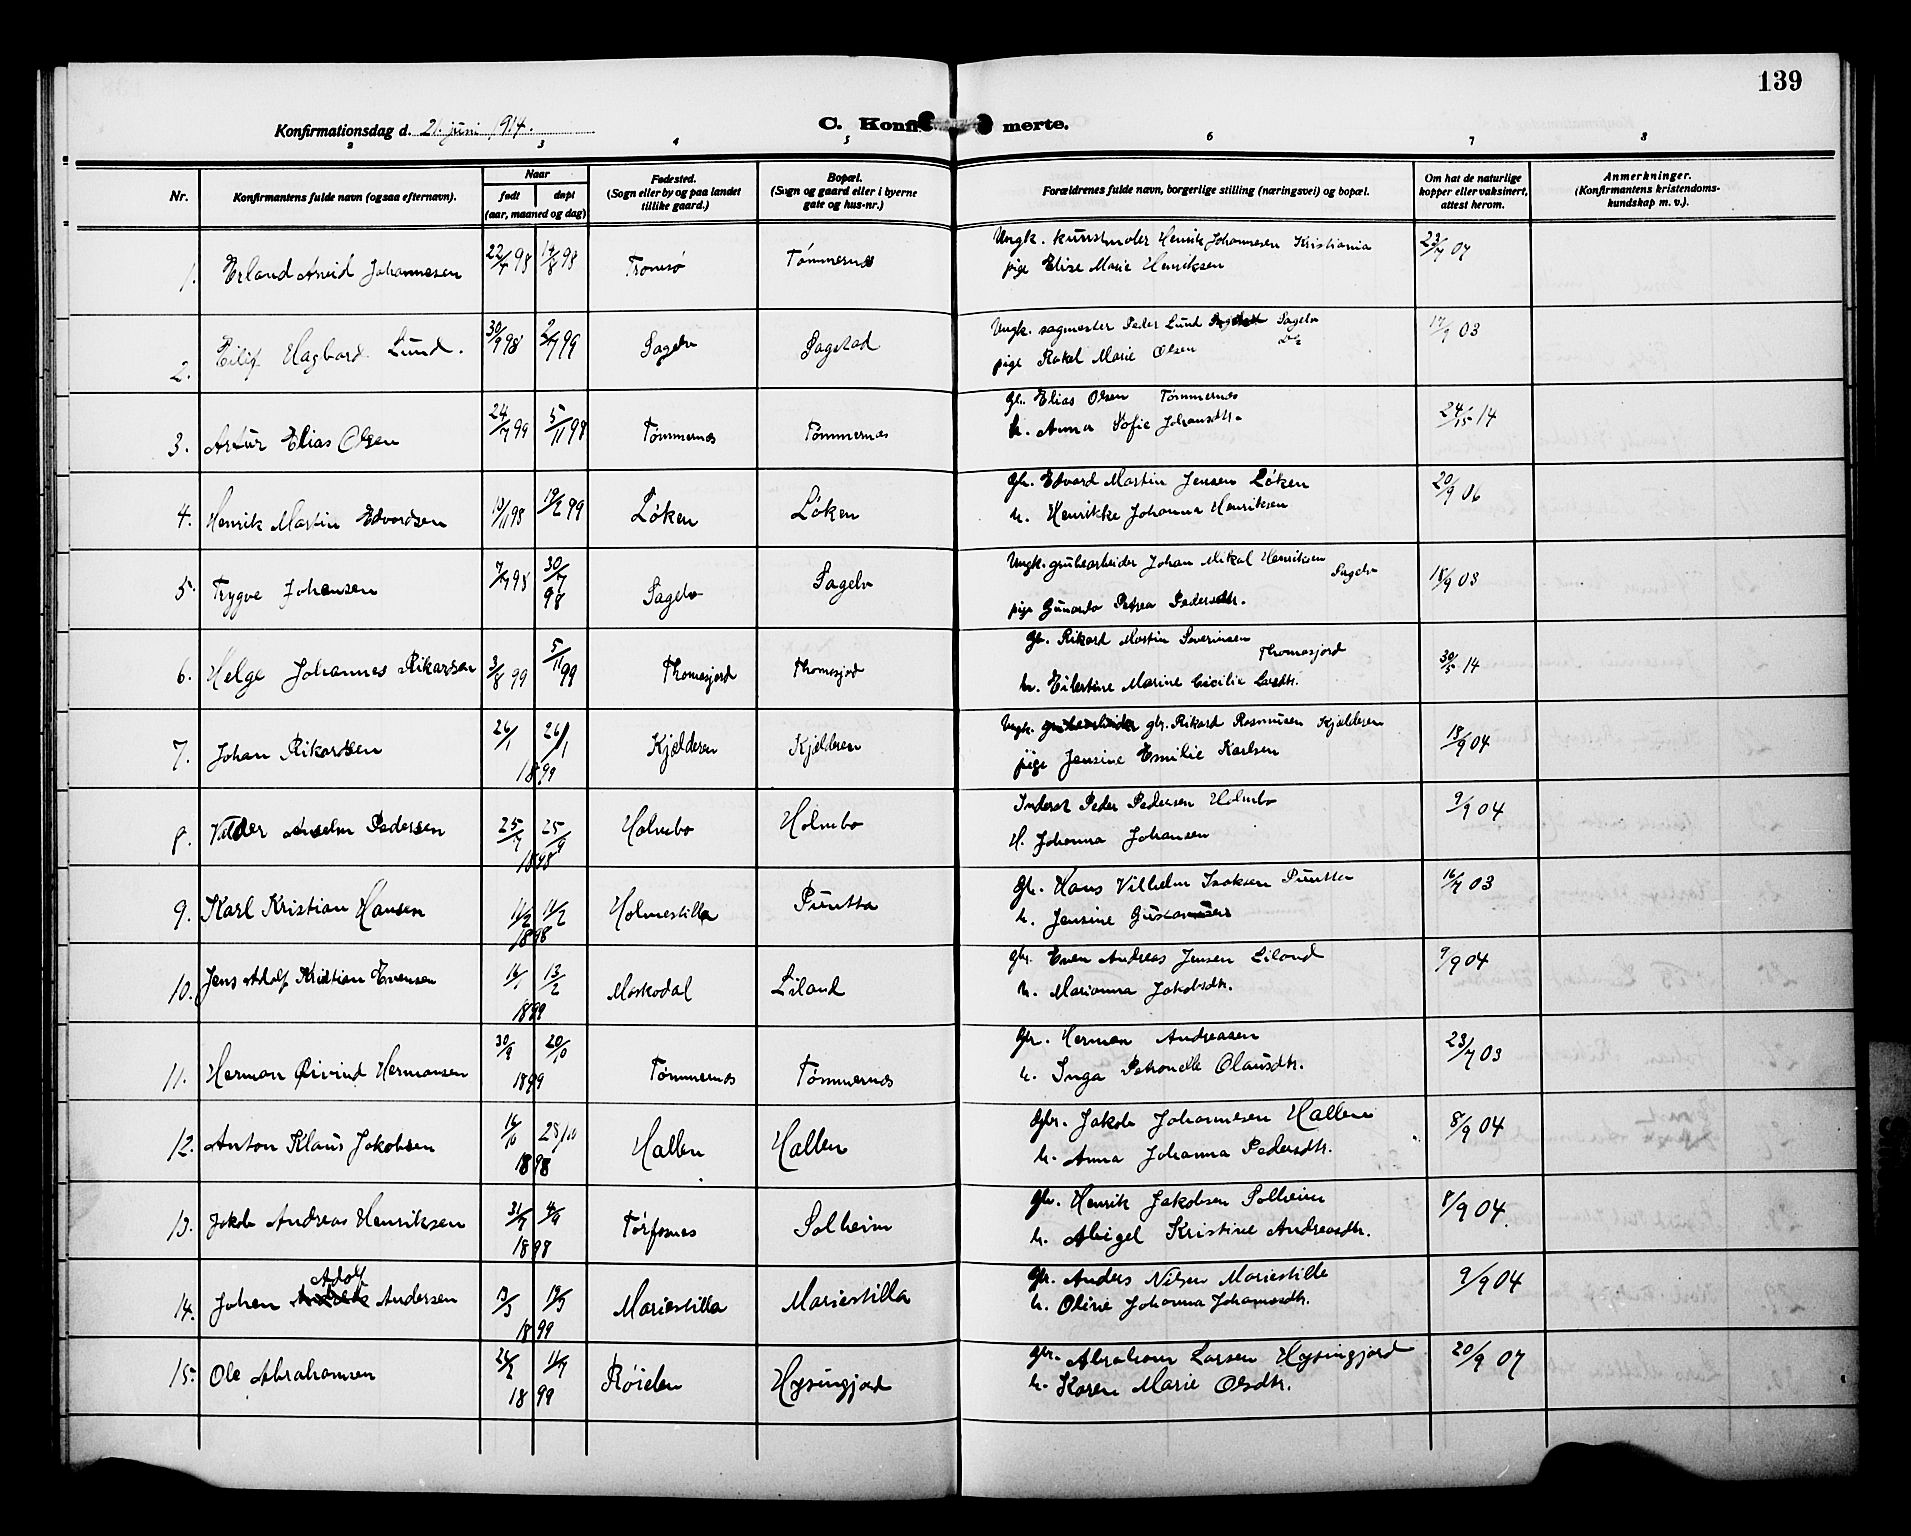 139
Konfirmationsdag d. 21. juni 1914.
C. Konfirmerte.
2 3 4 5 6 7 8
Nr. Konfirmantens fulde navn (ogsaa efternavn). Naar født døpt (aar, maaned og dag) Fødested. (Sogn eller by og paa landet tillike gaard.) Bopæl. (Sogn og gaard eller i byerne gate og hus-nr.) Forældrenes fulde navn, borgerlige stilling (næringsvei) og bopæl. Om hat de naturlige kopper eller vaksinert, attest herom. Anmerkninger. (Konfirmantens kristendomskundskap m. v.).
1. Erland Arvid Johannesen 22/7 98 14/8 98 Tromsø Tømmernes Ungk. kunstmaler Henrik Johannesen Kristiania 23/7 07
pige Elise Marie Henriksen
2. Eilif Hagbard Lund. 30/9 98 2/7 99 Sagelv Sagstad Ungk. sagmester Peder Lund Sagelv 17/9 03
pige Rakel Marie Olsen
3. Artur Elias Olsen 24/7 99 5/11 98 Tømmernes Tømmernes Gbr. Elias Olsen Tømmernes 24/5 14
h. Anna Sofie Johansdtr.
4. Henrik Martin Edvardsen 19/2 99 Løken Løken Gbr. Edvard Martin Jensen Løken 20/9 06
h. Henrikke Johanna Henriksen
5. Trygve Johansen 7/7 98 30/7 98 Sagelv Sagelv Ungk. grubearbeider Johan Mikal Henriksen Sagelv 18/9 03
pige Gunarda Petrea Pedersdtr.
6. Helge Johannes Rikardsen 3/8 99 5/11 99 Thomasjord Thomasjord Gbr. Rikard Martin Severinsen Thomasjord 30/5 14
h. Eilertine Marine Cicilie Larsdtr.
7. Johan Rikardsen 26/1 26/1 1899 Kjælderen Kjælderen Ungk. gbr. Rikard Rasmusen Kjælderen 18/9 04
pige Jensine Emilie Karlsen
8. Vilder Anselm Pedersen 25/7 25/9 1898 Holmbo Holmbo Inderst Peder Pedersen Holmbo 9/9 04
H. Johanna Johansen
9. Karl Kristian Hansen 11/2 11/2 1898 Holmestilla Puntta Gbr. Hans Vilhelm Isaksen Puntta 16/7 03
h. Jensine
10. Jens Adolf Kristian Evensen 16/1 13/2 1899 Moskodal Liland Gbr. Even Andreas Jensen Liland 9/9 04
h. Marianna Jakobsdtr.
11. Herman Øivind Hermansen 30/9 20/10 1899 Tømmernes Tømmernes Gbr. Herman Andreasen 23/7 03
h. Inga Petronelle Olausdtr.
12. Anton Klaus Jakobsen 16/10 28/10 1898 Hallen Hallen Gbr. Jakob Johannesen Hallen 8/9 04
h. Anna Johanna Pedersdtr.
13. Jakob Andreas Henriksen 31/7 4/9 1898 Tørfosnes Solheim Gbr. Henrik Jakobsen Solheim 8/9 04.
h. Abigel Kristine Andreasdtr.
14. Johan Adolf Andersen 13/3 19/3 1899 Mariestilla Mariestilla Gbr. Anders Nilsen Mariestilla 9/9 04
h. Oline Johanna Johannesdtr.
15. Ole Abrahamsen 26/2 11/9 1899 Røielen Høgsingjord Gbr. Abraham Larsen Høgsingjord 20/9 07
h. Karen Marie Olsdtr.